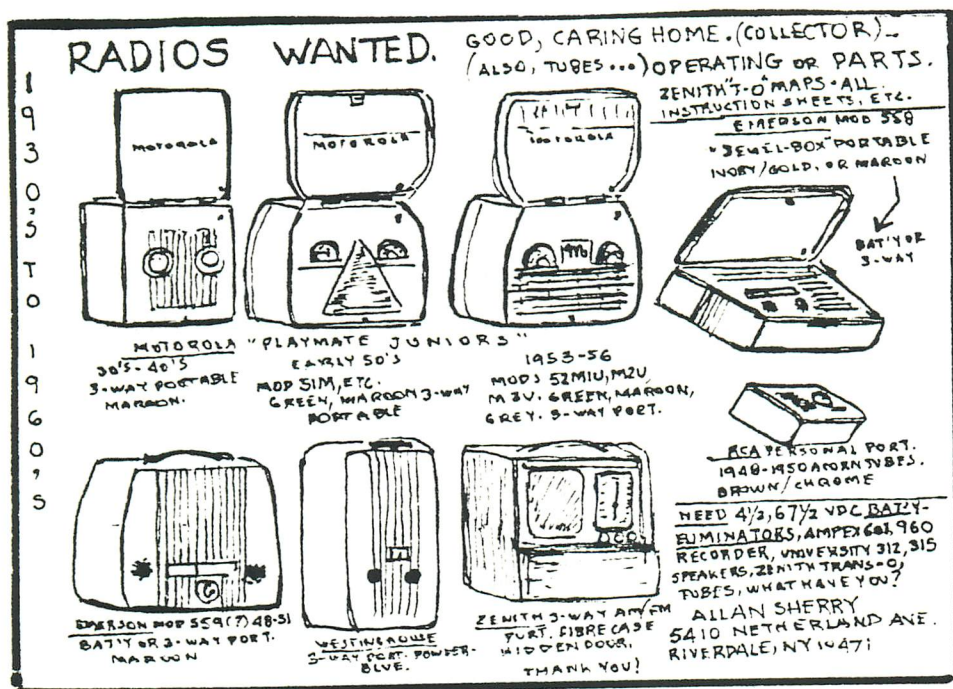 RADIOS WANTED.
GOOD, CARING HOME. (COLLECTOR) -
(ALSO, TUBES...) OPERATING OR PARTS.
1930'S TO 1960'S
ZENITH "T-O" MAPS - ALL
INSTRUCTION SHEETS, ETC.
EMERSON MOD 558
"JEWEL-BOX" PORTABLE
IVORY/GOLD, OR MAROON
BAT'Y OR
3-WAY
MOTOROLA
MOTOROLA
MOTOROLA
MOTOROLA "PLAYMATE JUNIORS"
30'S-40'S
3-WAY PORTABLE
MAROON.
EARLY 50'S
MOD 51M, ETC.
GREEN, MAROON 3-WAY
PORTABLE
1953-56
MODS 52M1U, M2U,
M3U. GREEN, MAROON,
GREY. 3-WAY PORT.
RCA PERSONAL PORT.
1948-1950 ACORN TUBES.
BROWN/CHROME
EMERSON MOD 559(?) 48-51
BAT'Y OR 3-WAY PORT.
MAROON
WESTINGHOUSE
3-WAY PORT. POWDER-
BLUE.
ZENITH 3-WAY AM/FM
PORT. FIBRE CASE
HIDDEN DOOR.
THANK YOU!
NEED 4½, 67½ VDC BAT'Y-
ELIMINATORS, AMPEX 960
RECORDER, UNIVERSITY 312, 315
SPEAKERS, ZENITH TRANS-O,
TUBES, WHAT HAVE YOU?
ALLAN SHERRY
5410 NETHERLAND AVE.
RIVERDALE, NY 10471